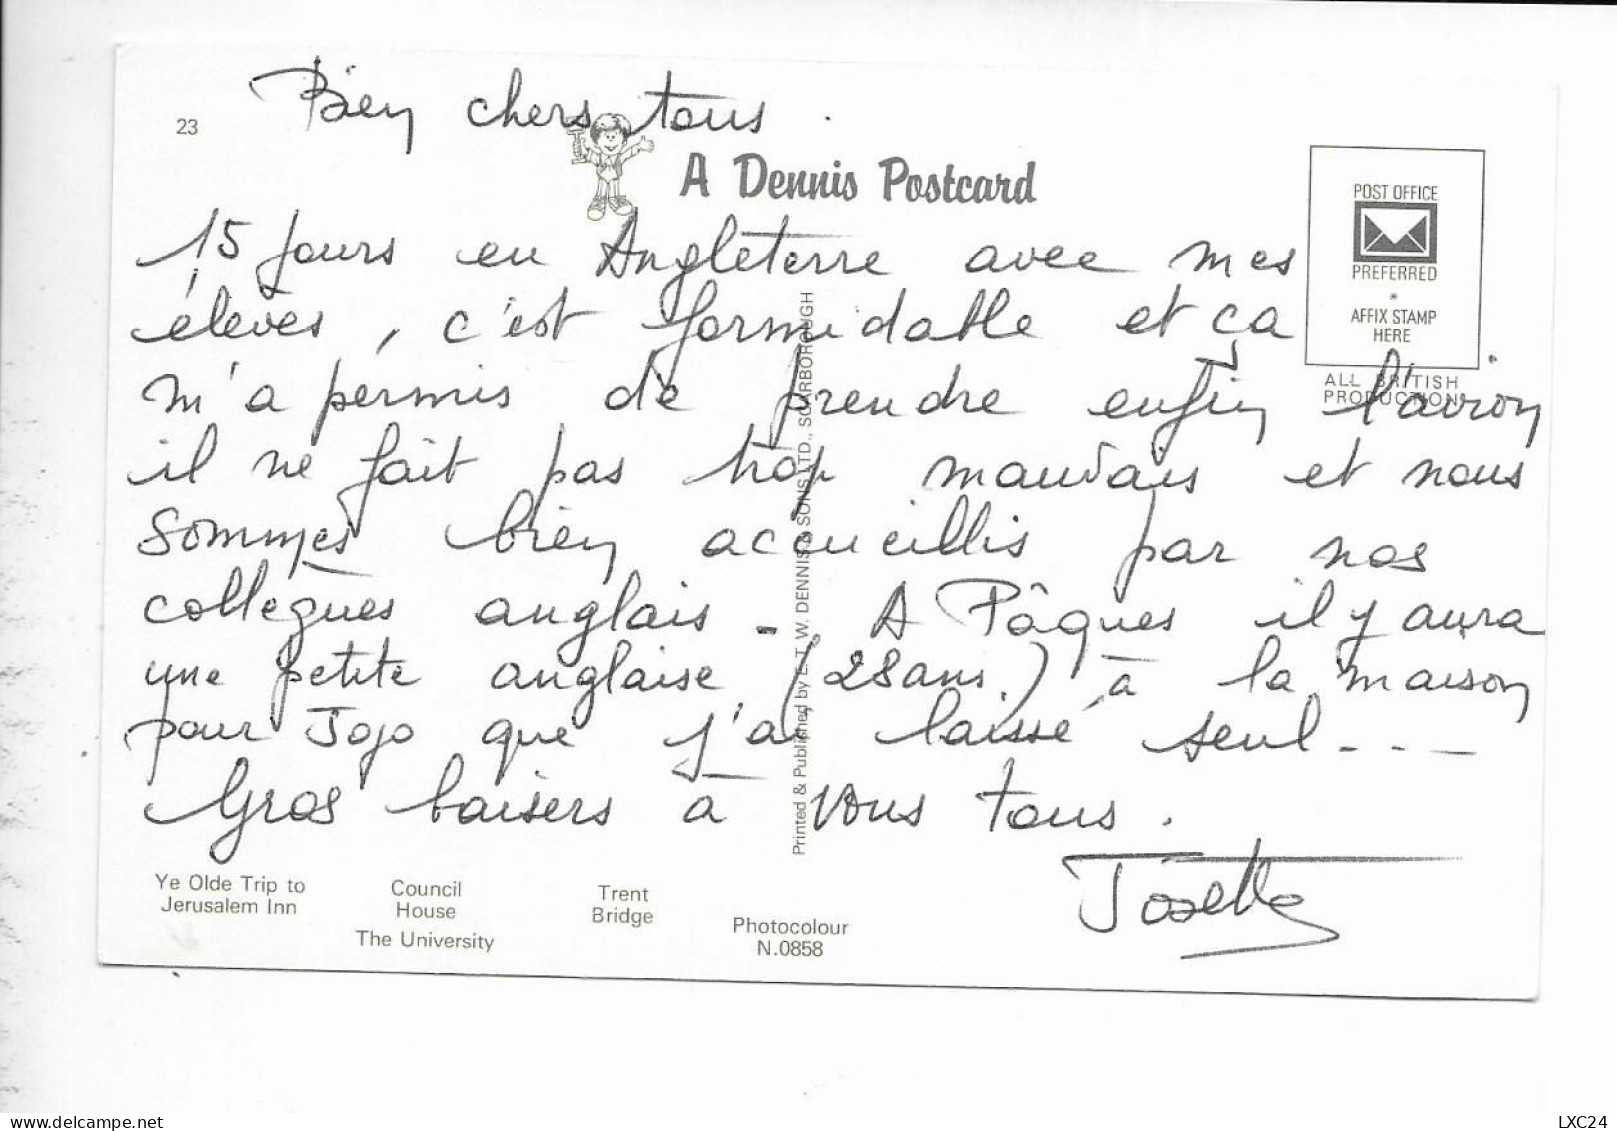 23
Bien chers tous.
A Dennis Postcard
POST OFFICE
PREFERRED
*
AFFIX STAMP
HERE
ALL BRITISH
PRODUCTION
15 jours en Angleterre avec mes
élèves, c'est formidable et ça
m'a permis de prendre enfin l'avion
il ne fait pas trop mauvais et nous
sommes bien accueillis par nos
collègues anglais - A Pâques il y aura
une petite anglaise (28 ans) à la maison
pour Jojo que j'ai laissé seul...
Gros baisers à vous tous.
Josette
Printed & Published by E. T. W. DENNIS & SONS LTD., SCARBOROUGH
Ye Olde Trip to
Jerusalem Inn
Council
House
The University
Trent
Bridge
Photocolour
N.0858
delcampe.net
LXC24